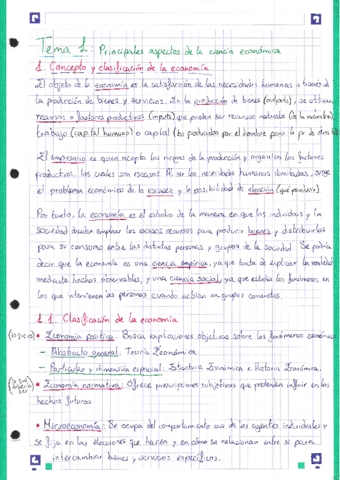 Tema 1: Principales aspectos de la ciencia económica
1. Concepto y clasificación de la economía
El objeto de la economía es la satisfacción de las necesidades humanas a través de
la producción de bienes y servicios. En la producción de bienes (outputs), se utilizan
recursos o factores productivos (inputs) que pueden ser recursos naturales (de la naturaleza)
trabajo (capital humano) o capital (los producidos por el hombre para la pr. de otros b)
El empresario es quien acepta los riesgos de la producción y organiza los factores
productivos, los cuales son escasos. Al ser las necesidades humanas ilimitadas, surge
el problema económico de la escasez y la posibilidad de elección (qué producir).
Por tanto, la economía es el estudio de la manera en que los individuos y la
sociedad deciden emplear los escasos recursos para producir bienes y distribuirlos
para su consumo entre las distintas personas y grupos de la sociedad. Se podría
decir que la economía es una ciencia empírica, ya que trata de explicar la realidad
mediante hechos observables, y una ciencia social, ya que estudia los fenómenos en
los que intervienen las personas cuando actúan en grupos concretos.
1.1. Clasificación de la economía
(lo que es) • Economía positiva: Busca explicaciones objetivas sobre los fenómenos económicos
- Abstracto general: Teoría Económica
- Particular y dimensión espacial: Estructura Económica e Historia Económica.
(lo que debería ser) • Economía normativa: Ofrece prescripciones subjetivas que pretenden influir en los
hechos futuros
• Microeconomía: Se ocupa del comportamiento de los agentes individuales y
se fija en las elecciones que hacen y en cómo se relacionan entre sí para
intercambiar bienes y servicios específicos.